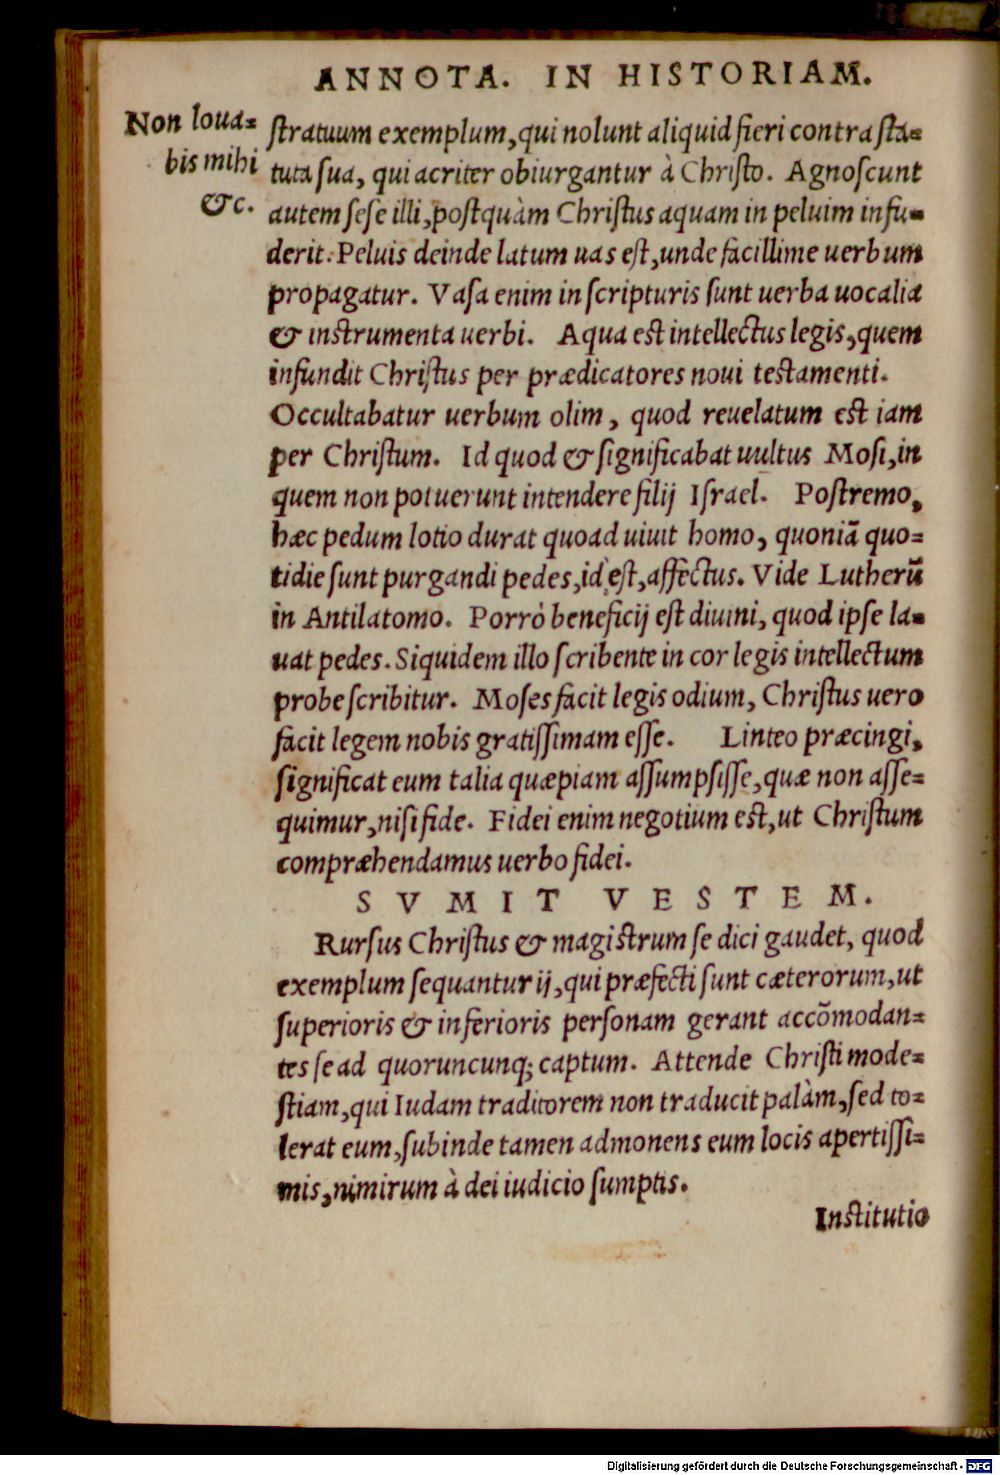 ANNOTA. IN HISTORIAM.
Non loua=
bis mihi
&c.
ſtratuum exemplum, qui nolunt aliquid fieri contra ſta=
tuta ſua, qui acriter obiurgantur à Chriſto. Agnoſcunt
autem ſeſe illi, poſtquàm Chriſtus aquam in peluim infu=
derit. Peluis deinde latum uas eſt, unde facillime uerbum
propagatur. Vaſa enim in ſcripturis ſunt uerba uocalia
& inſtrumenta uerbi. Aqua eſt intellectus legis, quem
infundit Chriſtus per prædicatores noui teſtamenti.
Occultabatur uerbum olim, quod reuelatum eſt iam
per Chriſtum. Id quod & ſignificabat uultus Moſi, in
quem non potuerunt intendere filij Iſrael. Poſtremo,
hæc pedum lotio durat quoad uiuit homo, quoniã quo=
tidie ſunt purgandi pedes, id eſt, affectus. Vide Lutherũ
in Antilatomo. Porrò beneficij eſt diuini, quod ipſe la=
uat pedes. Siquidem illo ſcribente in cor legis intellectum
probe ſcribitur. Moſes facit legis odium, Chriſtus uero
facit legem nobis gratiſſimam eſſe. Linteo præcingi,
ſignificat eum talia quæpiam aſſumpſiſſe, quæ non aſſe=
quimur, niſi fide. Fidei enim negotium eſt, ut Chriſtum
compræhendamus uerbo fidei.
SVMIT VESTEM.
Rurſus Chriſtus & magiſtrum ſe dici gaudet, quod
exemplum ſequantur ij, qui præfecti ſunt cæterorum, ut
ſuperioris & inferioris perſonam gerant accõmodan=
tes ſe ad quoruncunq; captum. Attende Chriſti mode=
ſtiam, qui Iudam traditorem non traducit palàm, ſed to=
lerat eum, ſubinde tamen admonens eum locis apertiſſi=
mis, nimirum à dei iudicio ſumptis.
Inſtitutio
Digitalisierung gefördert durch die Deutsche Forschungsgemeinschaft - DFG